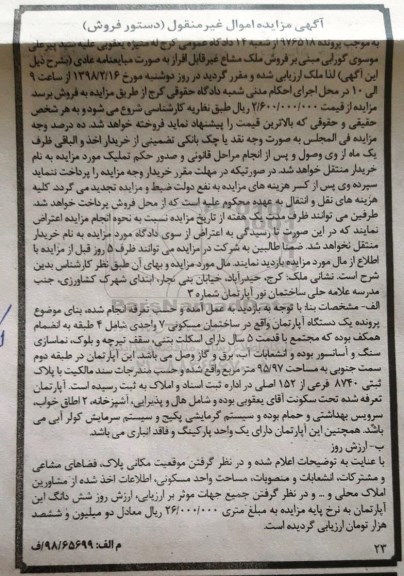 آگهی مزایده اموال غیر منقول (دستور فروش)
به موجب پرونده ۹۷۶۵۱۸ از شعبه ۱۴ دادگاه عمومی کرج له منیژه یعقوبی علیه سید پیرعلی
موسوی گورابی مبنی بر فروش ملک مشاع غیر قابل افراز به صورت مبایعنامه عادی (بشرح ذیل
این آگهی) لذا ملک ارزیابی شده و مقرر گردید در روز دوشنبه مورخ ۱۳۹۸/۲/۱۶ از ساعت ۹
الی ۱۰ در محل اجرای احکام مدنی شعبه دادگاه حقوقی کرج از طریق مزایده به فروش برسد
مزایده از قیمت ۲/۶۰۰/۰۰۰/۰۰۰ ریال طبق نظریه کارشناسی شروع می شود و به هر شخص
حقیقی و حقوقی که بالاترین قیمت را پیشنهاد نماید فروخته خواهد شد. ده درصد وجه
مزایده فی المجلس به صورت وجه نقد یا چک بانکی تضمینی از خریدار اخذ و الباقی ظرف
یک ماه از وی وصول و پس از انجام مراحل قانونی و صدور حکم تملیک مورد مزایده به نام
خریدار منتقل خواهد شد. در صورتیکه در مهلت مقرر خریدار وجه مزایده را پرداخت ننماید
سپرده وی پس از کسر هزینه های مزایده به نفع دولت ضبط و مزایده تجدید می گردد کلیه
هزینه های نقل و انتقال به عهده محکوم علیه است که از محل فروش پرداخت خواهد شد.
طرفین می توانند ظرف مدت یک هفته از تاریخ مزایده نسبت به نحوه انجام مزایده اعتراض
نمایند که در این صورت تا رسیدگی به اعتراض از سوی دادگاه مورد مزایده به نام خریدار
منتقل نخواهد شد. ضمنا طالبین به شرکت در مزایده می توانند ظرف ۵ روز قبل از مزایده با
اطلاع از مال مورد مزایده بازدید نمایند. مال مورد مزایده و بهای آن طبق نظر کارشناس بدین
شرح است. نشانی ملک: کرج، حیدرآباد، خیابان بنی نجار، ابتدای شهرک کشاورزی، جنب
مدرسه علامه حلی ساختمان نور آپارتمان شماره ۳
الف- مشخصات بنا: با توجه به بازدید به عمل آمده و حسب تعرفه انجام شده، بنای موضوع
پرونده یک دستگاه آپارتمان واقع در ساختمان مسکونی ۷ واحدی شامل ۴ طبقه به انضمام
همکف بوده که مجتمع با قدمت ۵ سال دارای اسکلت بتنی، سقف تیرچه و بلوک، نماسازی
سنگ و آسانسور بوده و انشعابات آب، برق و گاز وصل می باشد. این آپارتمان در طبقه دوم
سمت جنوبی به مساحت ۹۵/۹۷ متر مربع واقع شده و حسب مندرجات سند مالکیت با پلاک
ثبتی ۸۷۴۰ فرعی از ۱۵۲ اصلی در اداره ثبت اسناد و املاک به ثبت رسیده است. آپارتمان
تعرفه شده تحت سکونت آقای یعقوبی بوده و شامل هال و پذیرایی، آشپزخانه، ۲ اطاق خواب،
سرویس بهداشتی و حمام بوده و سیستم گرمایشی پکیج و سیستم سرمایش کولر آبی می
باشد. همچنین این آپارتمان دارای یک واحد پارکینگ و فاقد انباری می باشد.
ب- ارزش روز
با عنایت به توضیحات اعلام شده و در نظر گرفتن موقعیت مکانی پلاک، فضاهای مشاعی
و مشترکات، انشعابات و منصوبات، مساحت واحد مسکونی، اطلاعات اخذ شده از مشاورین
املاک محلی و ... و در نظر گرفتن جمیع جهات موثر بر ارزیابی، ارزش روز شش دانگ این
آپارتمان به نرخ پایه مزایده به مبلغ متری ۲۶/۰۰۰/۰۰۰ ریال معادل دو میلیون و ششصد
هزار تومان ارزیابی گردیده است.
۲۳
م الف: ۹۸/۶۵۶۹۹/ف